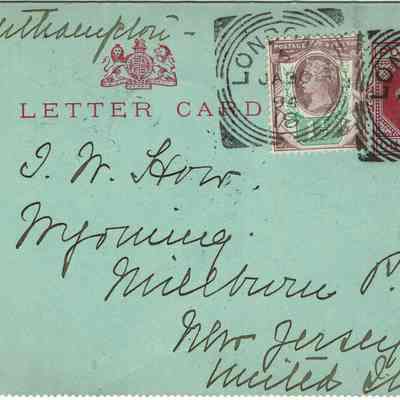 uthampton -
LETTER CARD
LONDON
JA
94
POSTAGE
LON
J. W. How.
Wyoming.
Millburn P.
New Jersey
United St